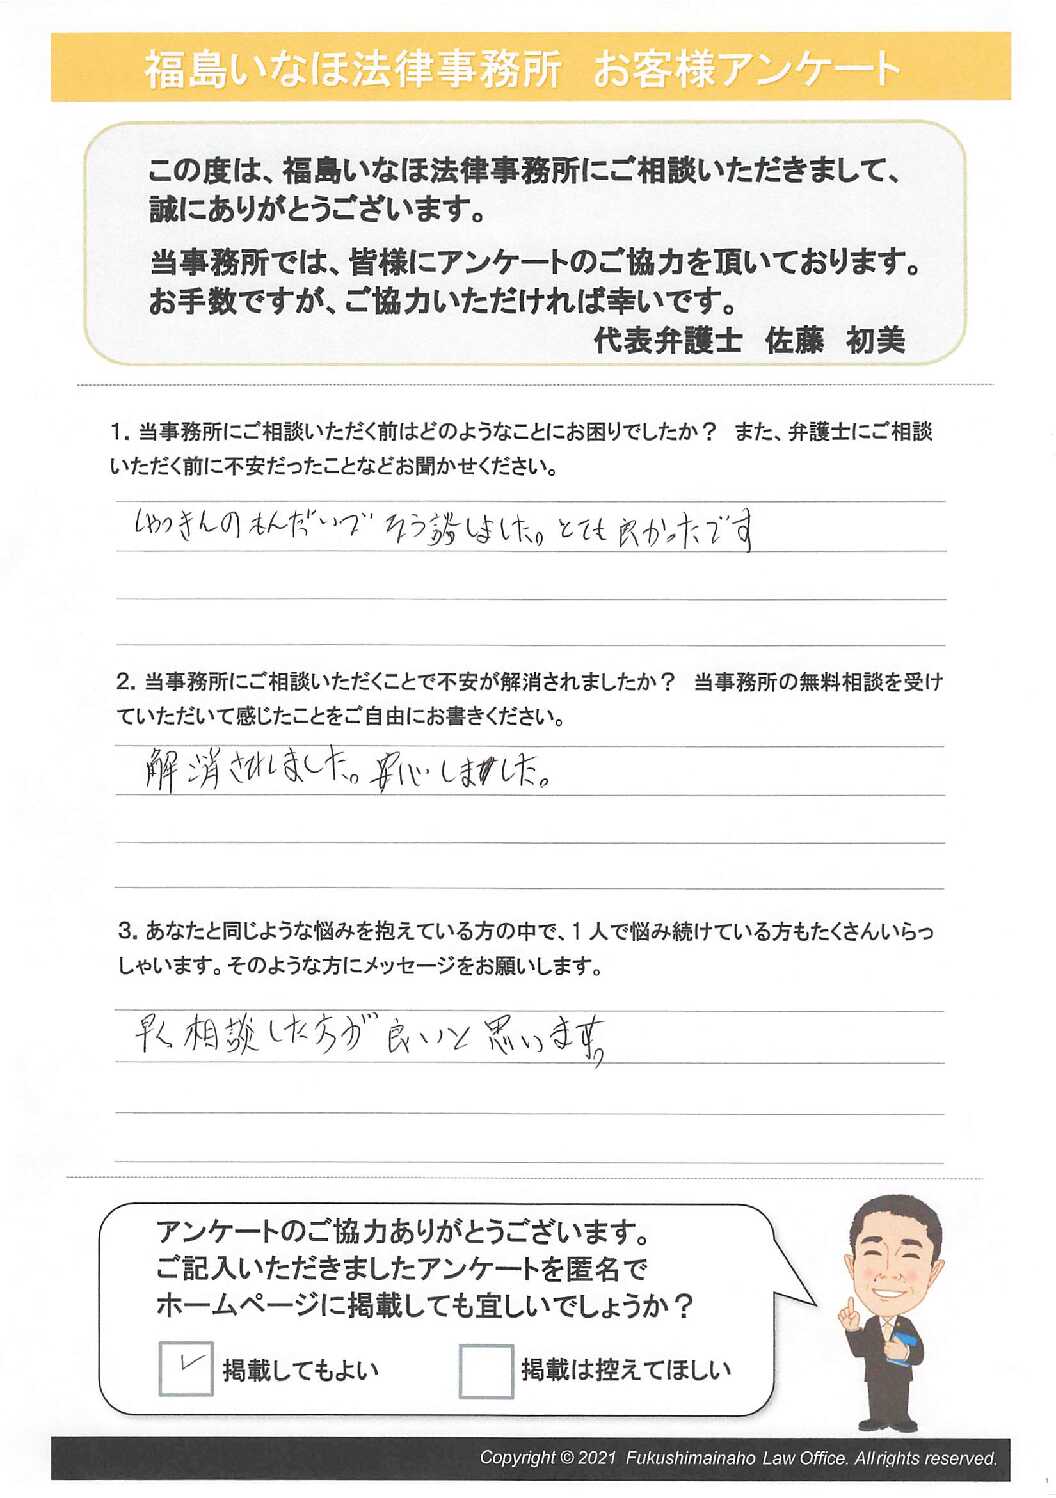 福島いなほ法律事務所　お客様アンケート
この度は、福島いなほ法律事務所にご相談いただきまして、
誠にありがとうございます。
当事務所では、皆様にアンケートのご協力を頂いております。
お手数ですが、ご協力いただければ幸いです。
代表弁護士　佐藤　初美
1. 当事務所にご相談いただく前はどのようなことにお困りでしたか？　また、弁護士にご相談
いただく前に不安だったことなどお聞かせください。
しゃっきんのもんだいで そう談しました。とても良かったです
2. 当事務所にご相談いただくことで不安が解消されましたか？　当事務所の無料相談を受け
ていただいて感じたことをご自由にお書きください。
解消されました。安心しました。
3. あなたと同じような悩みを抱えている方の中で、1人で悩み続けている方もたくさんいらっ
しゃいます。そのような方にメッセージをお願いします。
早く相談した方が良いと思います。
アンケートのご協力ありがとうございます。
ご記入いただきましたアンケートを匿名で
ホームページに掲載しても宜しいでしょうか？
✓ 掲載してもよい　掲載は控えてほしい
Copyright © 2021 Fukushimainaho Law Office. All rights reserved.